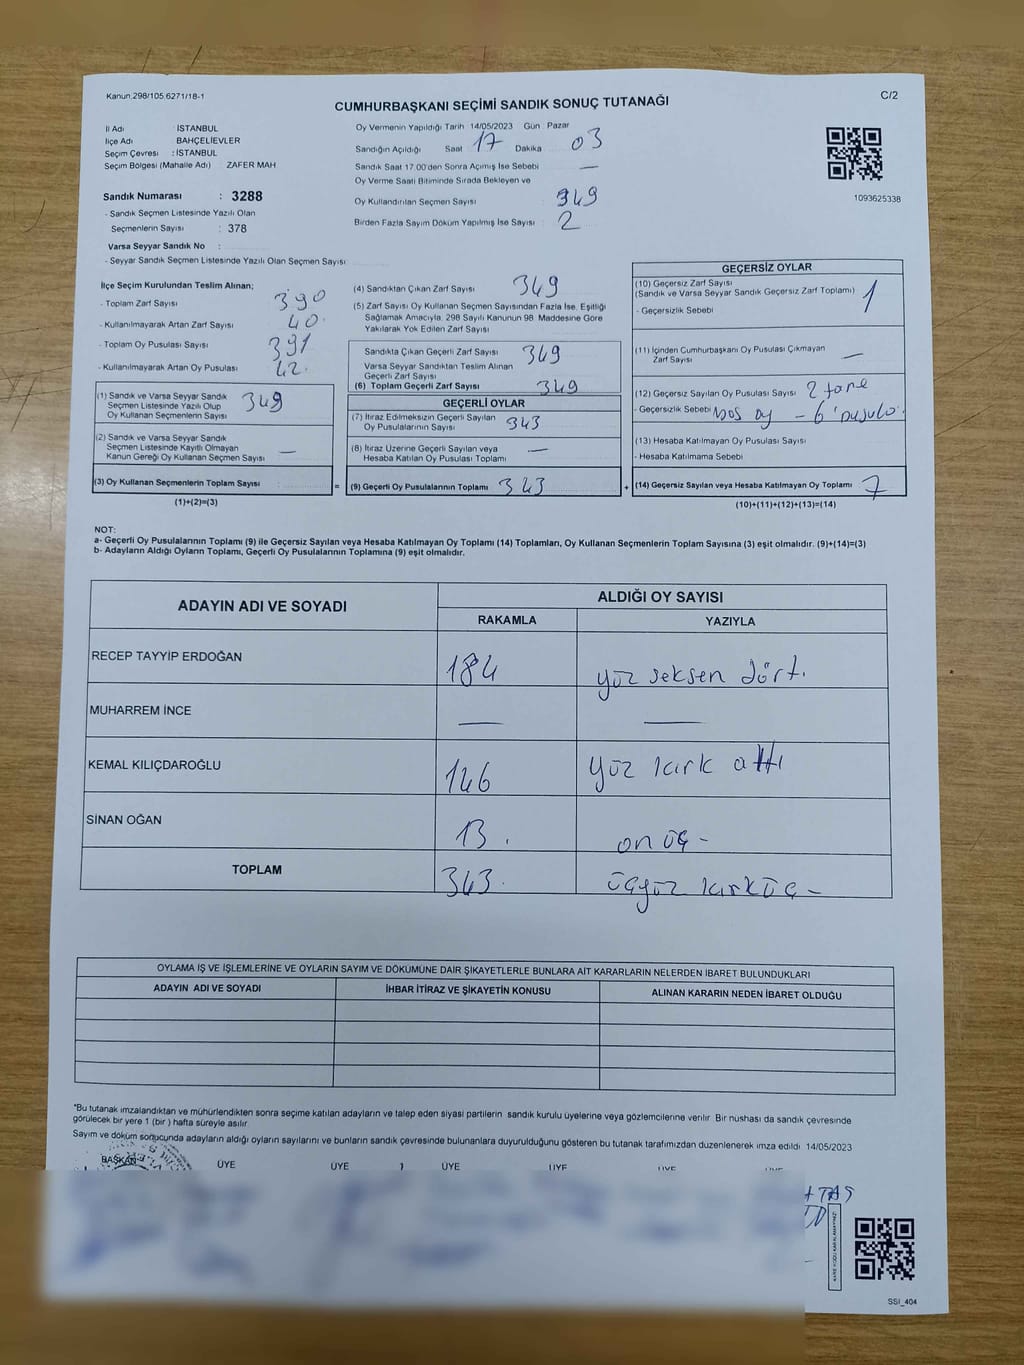 Kanun 298/105 6271/18-1
CUMHURBAŞKANI SEÇİMİ SANDIK SONUÇ TUTANAĞI
C/2
İl Adı : İSTANBUL
İlçe Adı : BAHÇELİEVLER
Seçim Çevresi : İSTANBUL
Seçim Bölgesi (Mahalle Adı) : ZAFER MAH
Sandık Numarası : 3288
- Sandık Seçmen Listesinde Yazılı Olan
Seçmenlerin Sayısı : 378
Varsa Seyyar Sandık No :
- Seyyar Sandık Seçmen Listesinde Yazılı Olan Seçmen Sayısı:
Oy Vermenin Yapıldığı Tarih 14/05/2023 Gün Pazar
Sandığın Açıldığı Saat 17 Dakika 03
Sandık Saat 17 00'den Sonra Açımış İse Sebebi —
Oy Verme Saati Bitiminde Sırada Bekleyen ve
Oy Kullandırılan Seçmen Sayısı : 349
Birden Fazla Sayım Döküm Yapılmış İse Sayısı : 2
1093625338
İlçe Seçim Kurulundan Teslim Alınan;
- Toplam Zarf Sayısı 390
- Kullanılmayarak Artan Zarf Sayısı 40.
- Toplam Oy Pusulası Sayısı 391
- Kullanılmayarak Artan Oy Pusulası 42.
(1) Sandık ve Varsa Seyyar Sandık
Seçmen Listesinde Yazılı Olup
Oy Kullanan Seçmenlerin Sayısı 349
(2) Sandık ve Varsa Seyyar Sandık
Seçmen Listesinde Kayıtlı Olmayan
Kanun Gereği Oy Kullanan Seçmen Sayısı —
(3) Oy Kullanan Seçmenlerin Toplam Sayısı :
(1)+(2)=(3)
(4) Sandıktan Çıkan Zarf Sayısı 349
(5) Zarf Sayısı Oy Kullanan Seçmen Sayısından Fazla İse, Eşitliği
Sağlamak Amacıyla, 298 Sayılı Kanunun 98. Maddesine Göre
Yakılarak Yok Edilen Zarf Sayısı
Sandıkta Çıkan Geçerli Zarf Sayısı 349
Varsa Seyyar Sandıktan Teslim Alınan
Geçerli Zarf Sayısı
(6) Toplam Geçerli Zarf Sayısı 349
GEÇERLİ OYLAR
(7) İtiraz Edilmeksizin Geçerli Sayılan
Oy Pusulalarının Sayısı 343
(8) İtiraz Üzerine Geçerli Sayılan veya
Hesaba Katılan Oy Pusulası Toplamı —
= (9) Geçerli Oy Pusulalarının Toplamı 343 +
GEÇERSİZ OYLAR
(10) Geçersiz Zarf Sayısı
(Sandık ve Varsa Seyyar Sandık Geçersiz Zarf Toplamı) 1
- Geçersizlik Sebebi
(11) İçinden Cumhurbaşkanı Oy Pusulası Çıkmayan
Zarf Sayısı —
(12) Geçersiz Sayılan Oy Pusulası Sayısı 2 tane
- Geçersizlik Sebebi boş oy - 6
(13) Hesaba Katılmayan Oy Pusulası Sayısı
- Hesaba Katılmama Sebebi
(14) Geçersiz Sayılan veya Hesaba Katılmayan Oy Toplamı 7
(10)+(11)+(12)+(13)=(14)
NOT:
a- Geçerli Oy Pusulalarının Toplamı (9) ile Geçersiz Sayılan veya Hesaba Katılmayan Oy Toplamı (14) Toplamları, Oy Kullanan Seçmenlerin Toplam Sayısına (3) eşit olmalıdır. (9)+(14)=(3)
b- Adayların Aldığı Oyların Toplamı, Geçerli Oy Pusulalarının Toplamına (9) eşit olmalıdır.
ADAYIN ADI VE SOYADI
ALDIĞI OY SAYISI
RAKAMLA YAZIYLA
RECEP TAYYİP ERDOĞAN 184 yüz seksen dört.
MUHARREM İNCE — —
KEMAL KILIÇDAROĞLU 146 yüz kırk altı
SİNAN OĞAN 13. on üç -
TOPLAM 343. üçyüz kırküç -
OYLAMA İŞ VE İŞLEMLERİNE VE OYLARIN SAYIM VE DÖKÜMÜNE DAİR ŞİKAYETLERLE BUNLARA AİT KARARLARIN NELERDEN İBARET BULUNDUKLARI
ADAYIN ADI VE SOYADI İHBAR İTİRAZ VE ŞİKAYETİN KONUSU ALINAN KARARIN NEDEN İBARET OLDUĞU
"Bu tutanak imzalandıktan ve mühürlendikten sonra seçime katılan adayların ve talep eden siyasi partilerin sandık kurulu üyelerine veya gözlemcilerine verilir. Bir nüshası da sandık çevresinde
görülecek bir yere 1 (bir ) hafta süreyle asılır.
Sayım ve döküm sonucunda adayların aldığı oyların sayılarını ve bunların sandık çevresinde bulunanlara duyurulduğunu gösteren bu tutanak tarafımızdan düzenlenerek imza edildi 14/05/2023
BAŞKAN ÜYE ÜYE ÜYE ÜYE ÜYE
SSI_404